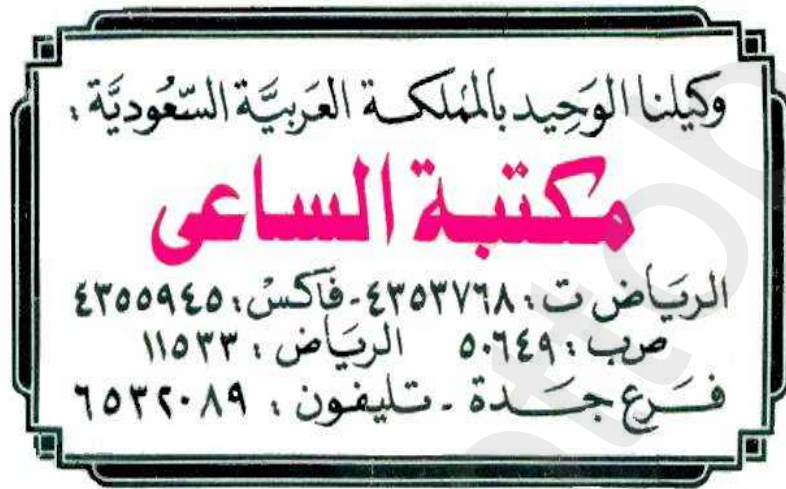 وكيلنا الوَحِيد بالمملكة العَربيَّة السّعُوديَّة :
مكتبة الساعى
الريَاض ت : ٤٣٥٣٧٦٨ - فَاكسْ : ٤٣٥٥٩٤٥
صرب : ٥٠٦٤٩ الريَاض : ١١٥٣٣
فرع جدة - تليفون : ٦٥٣٢٠٨٩